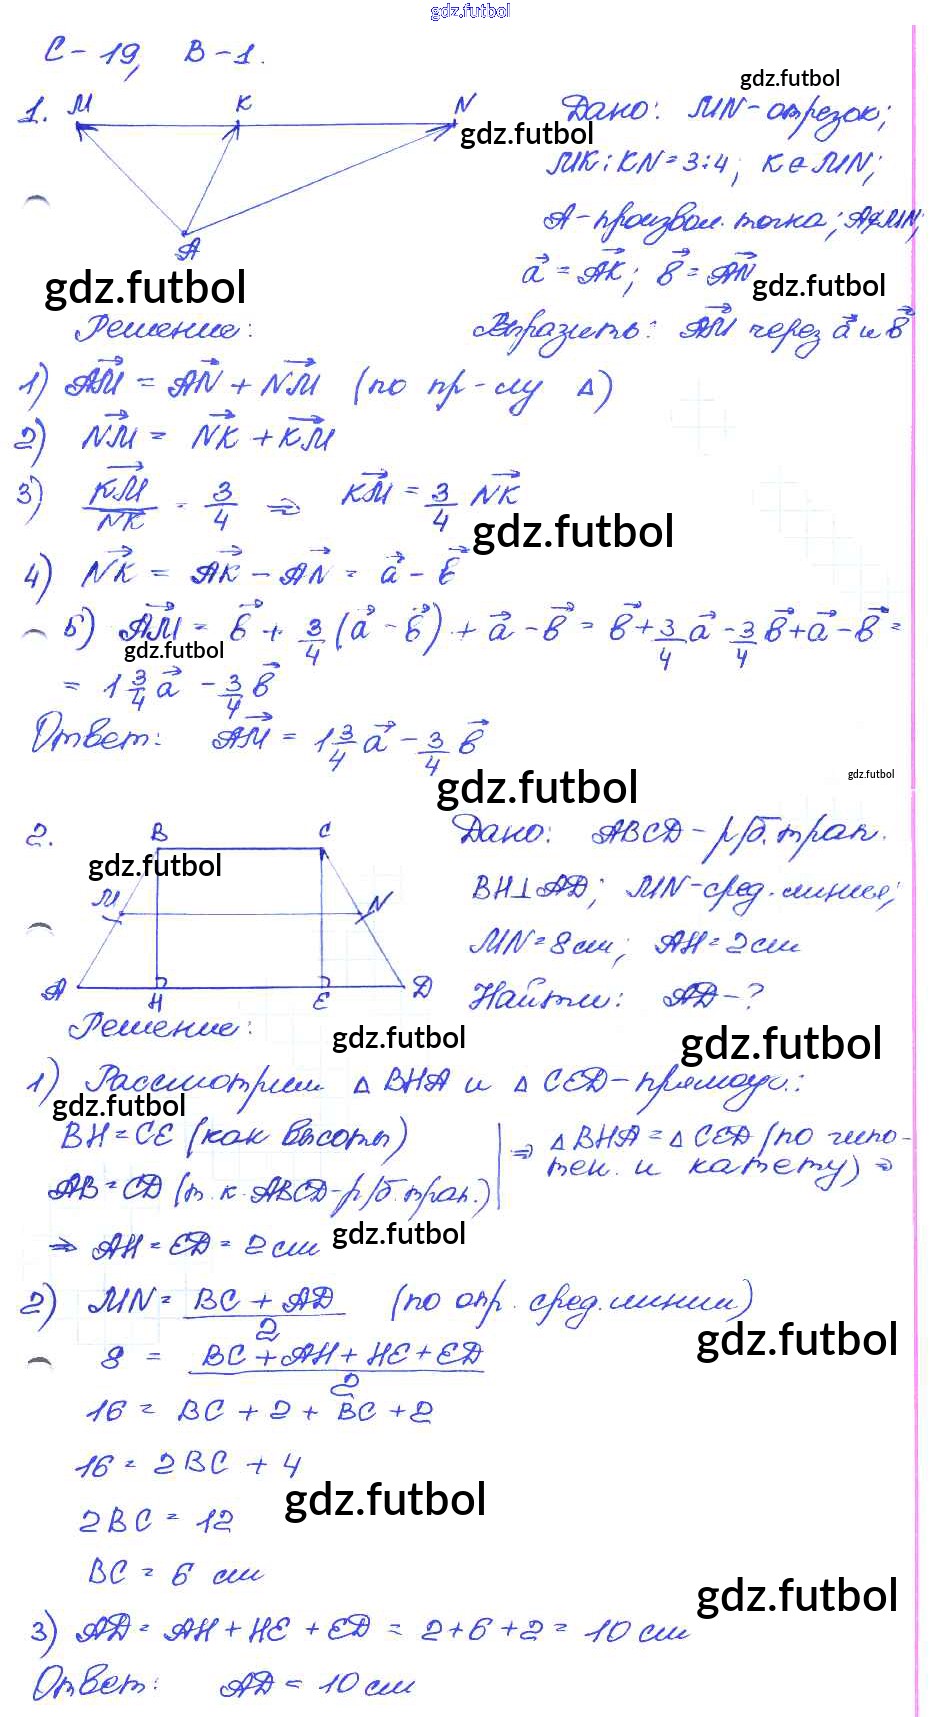 gdz.futbol
С-19, В-1.
gdz.futbol
1. M K N
gdz.futbol
Дано: MN-отрезок;
MK:KN=3:4; K∈MN;
A
A-произвол. точка; A∉MN;
gdz.futbol
a⃗ = AK⃗; b⃗ = AN⃗
gdz.futbol
Решение:
Выразить: AM⃗ через a⃗ и b⃗
1) AM⃗ = AN⃗ + NM⃗ (по пр-лу Δ)
2) NM⃗ = NK⃗ + KM⃗
3) KM⃗/NK⃗ = 3/4 ⇒ KM⃗ = 3/4 NK⃗
gdz.futbol
4) NK⃗ = AK⃗ - AN⃗ = a⃗ - b⃗
5) AM⃗ = b⃗ + 3/4 (a⃗ - b⃗) + a⃗ - b⃗ = b⃗ + 3/4 a⃗ - 3/4 b⃗ + a⃗ - b⃗ =
gdz.futbol
= 1 3/4 a⃗ - 3/4 b⃗
Ответ: AM⃗ = 1 3/4 a⃗ - 3/4 b⃗
gdz.futbol
gdz.futbol
2. B C
Дано: ABCD-р/б. трап.
gdz.futbol
BH⊥AD; MN-сред. линия;
M N
MN=8см; AH=2см
A H E D
Найти: AD-?
Решение:
gdz.futbol
gdz.futbol
1) Рассмотрим Δ BHA и Δ CED-прямоуг.:
gdz.futbol
BH=CE (как высоты)
AB=CD (т.к. ABCD-р/б. трап.)
⇒ Δ BHA = Δ CED (по гипо-
тен. и катету) ⇒
gdz.futbol
⇒ AH = ED = 2 см
2) MN = BC + AD / 2 (по опр. сред. линии)
gdz.futbol
8 = BC + AH + HE + ED / 2
16 = BC + 2 + BC + 2
16 = 2BC + 4
gdz.futbol
2BC = 12
BC = 6 см
gdz.futbol
3) AD = AH + HE + ED = 2+6+2 = 10 см
Ответ: AD = 10 см